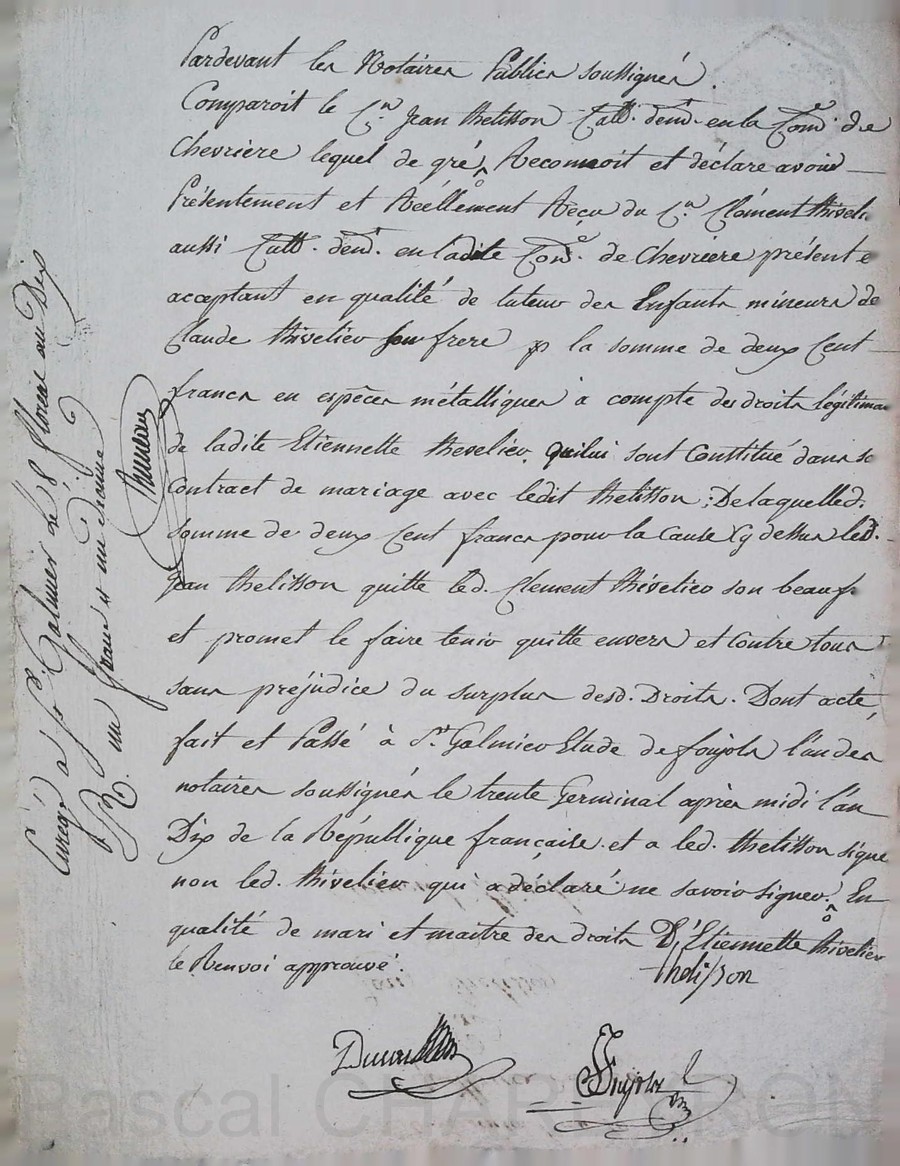 Pardevant les Notaires Publics soussignés
Comparoit le Cen. Jean thelisson Cultr. demt. en la Come. de
Chevriere lequel de gré, Reconnoit et déclare avoir
Présentement et Réellement Reçu du Cen. Clément thiveli
aussi Cultr. demt. en ladite Come. de Chevriere présent e
acceptant en qualité de tuteur des Enfants mineurs de
Claude thivelier son frere la somme de deux Cent
francs en espèces métalliques a compte des droits légitimai
de ladite Etiennette thevelier quilui sont Constitué dans so
Contract de mariage avec ledit thelisson ; De laquelle d.
somme de deux Cent francs pour la Cause Cy dessus led.
Jean thelisson quitte led. Clement thivelier son beauf.
et promet le faire tenir quitte envers et Contre tous
sans préjudice du surplus desd. Droits. Dont acte,
fait et Passé à St. Galmier Etude de foujols l'un des
notaires soussignés le trente Germinal après midi l'an
Dix de la République française. et a led. thelisson signé
non led. thivelier qui a déclaré ne savoir signer. En
qualité de mari et maitre des droits D'Etiennette thivelier
le Renvoi approuvé.
thelisson
foujols
Enregé à St. Galmier le 8 floreal an Dix
R. un franc et un dixième